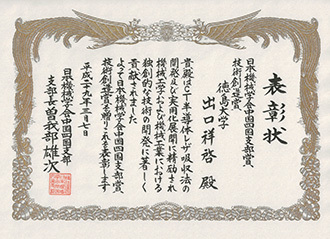 表彰状
日本機械学会中国四国支部賞
技術創造賞
徳島大学
出口祥啓 殿
貴殿はCT半導体レーザ吸収法の
開発及び実用化展開に精励され
機械工学および機械工業における
独創的な技術の開発に著しく
貢献されました
よって日本機械学会中国四国支部賞
技術創造賞を贈りこれを表彰します
平成二十九年三月七日
日本機械学会中国四国支部
支部長 曽我部雄次